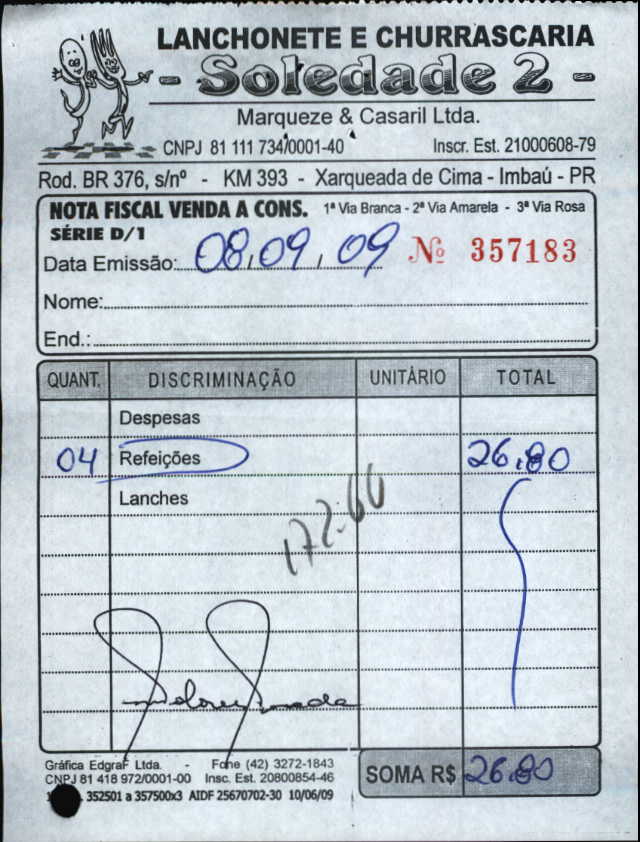 LANCHONETE E CHURRASCARIA
- Soledade 2 -
Marqueze & Casaril Ltda.
CNPJ 81 111 734/0001-40 Inscr. Est. 21000608-79
Rod. BR 376, s/nº - KM 393 - Xarqueada de Cima - Imbaú - PR
NOTA FISCAL VENDA A CONS. 1ª Via Branca - 2ª Via Amarela - 3ª Via Rosa
SÉRIE D/1
Data Emissão: 08, 09, 09 Nº 357183
Nome:
End.:
QUANT. DISCRIMINAÇÃO UNITÁRIO TOTAL
Despesas
04 Refeições 26,80
Lanches
172.60
Gráfica Edgraf Ltda. - Fone (42) 3272-1843
CNPJ 81 418 972/0001-00 Insc. Est. 20800854-46
352501 a 357500x3 AIDF 25670702-30 10/06/09
SOMA R$ 26,80